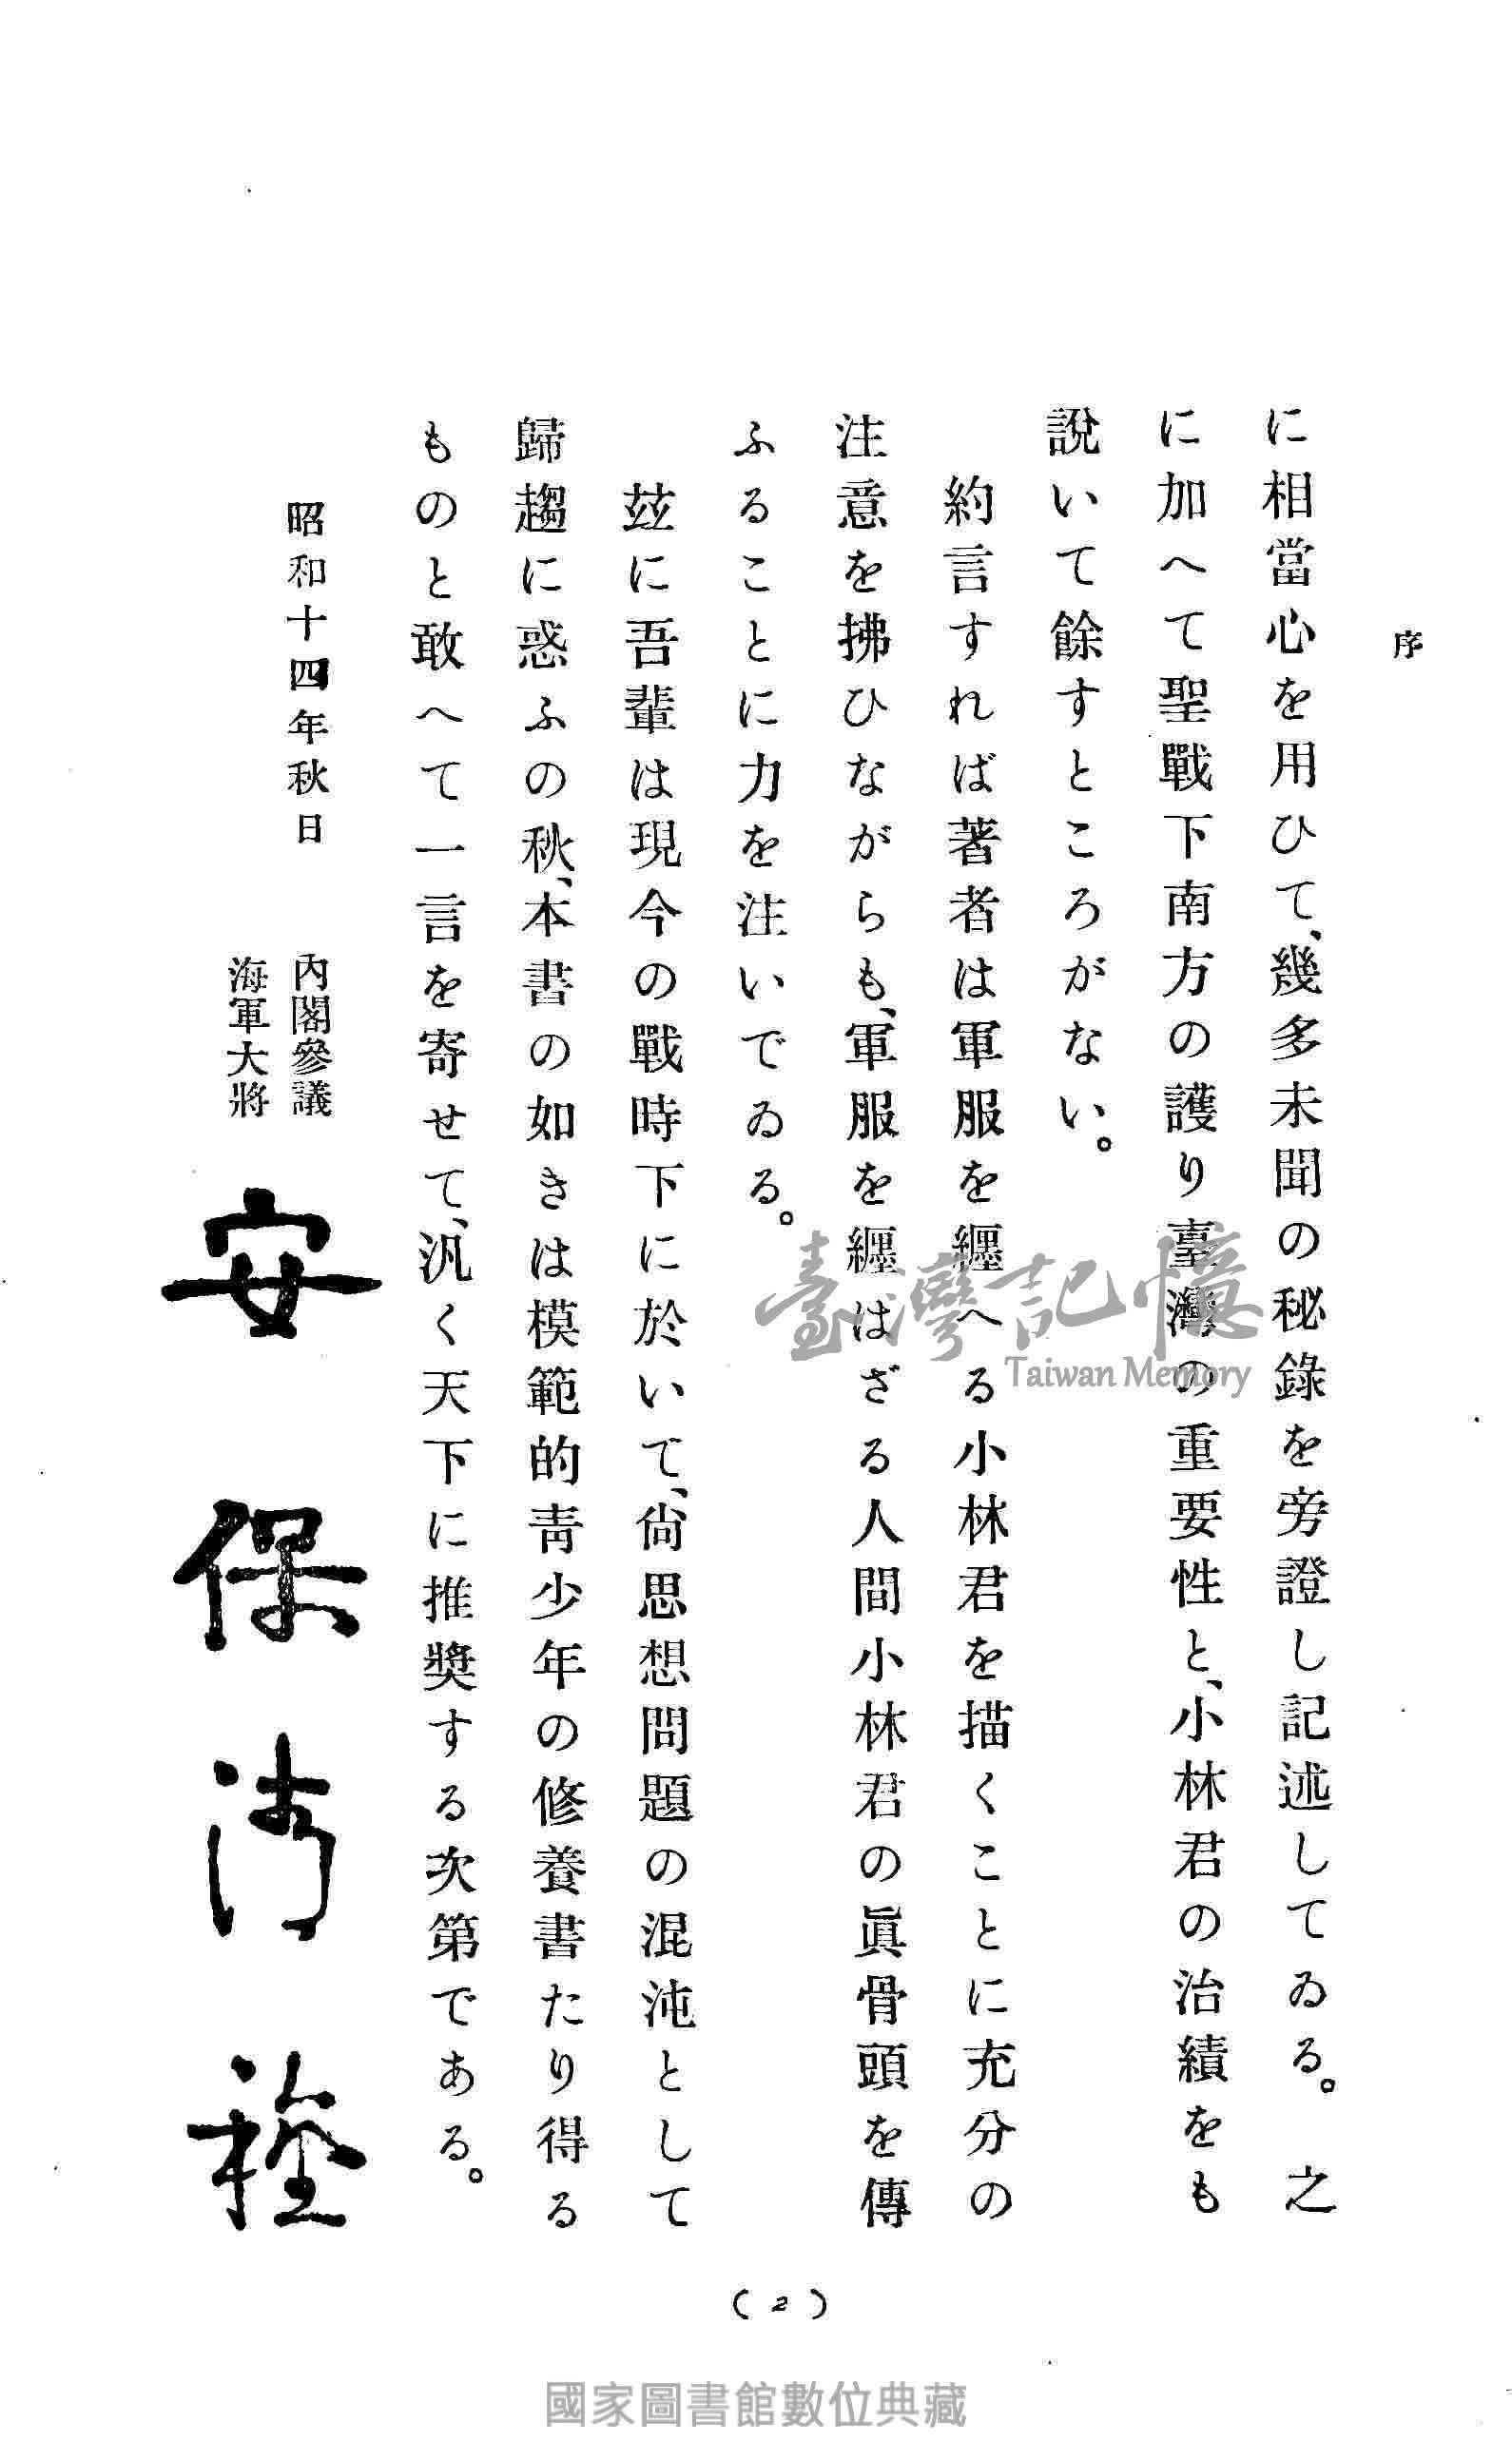 序
に相當心を用ひて、幾多未聞の秘錄を旁證し記述してゐる。之
に加へて聖戰下南方の護り臺灣の重要性と、小林君の治績をも
說いて餘すところがない。
約言すれば著者は軍服を纒へる小林君を描くことに充分の
注意を拂ひながらも、軍服を纒はざる人間小林君の眞骨頭を傳
ふることに力を注いでゐる。
玆に吾輩は現今の戰時下に於いて、尙思想問題の混沌として
歸趨に惑ふの秋、本書の如きは模範的靑少年の修養書たり得る
ものと敢へて一言を寄せて、汎く天下に推奬する次第である。
昭和十四年秋日
內閣參議
海軍大將
安保淸種
(2)
臺灣記憶
Taiwan Memory
國家圖書館數位典藏